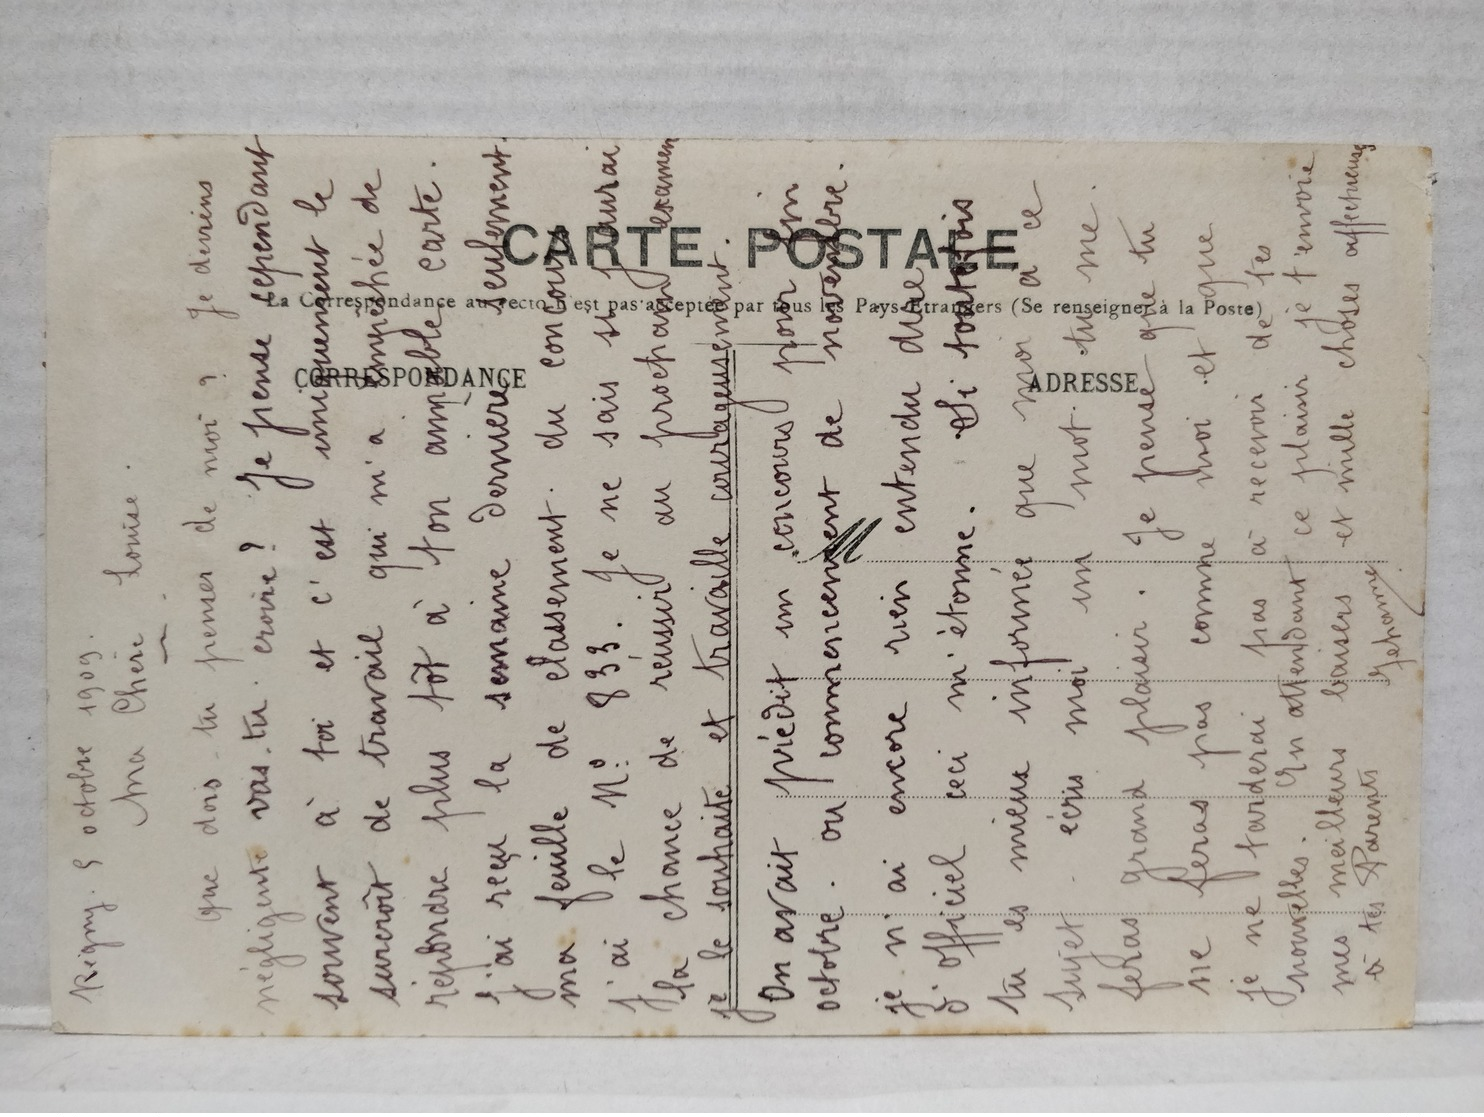 CARTE POSTALE
La Correspondance au recto n'est pas acceptée par tous les Pays Etrangers (Se renseigner à la Poste)
CORRESPONDANCE
ADRESSE
M
Régny. 5 octobre 1909.
Ma Chère Louise.
Que dois-tu penser de moi ? Je deviens
négligente vas-tu croire ? Je pense cependant
souvent à toi et c'est uniquement le
surcroît de travail qui m'a empêchée de
répondre plus tôt à ton aimable carte.
J'ai reçu la semaine dernière seulement
ma feuille de classement du concours
j'ai le N° 833. Je ne sais si j'aurai
la chance de réussir au prochain examen
je le souhaite et travaille courageusement.
On avait prédit un concours pour fin
octobre ou commencement de novembre.
je n'ai encore rien entendu dire
d'officiel ceci m'étonne. Si toutefois
tu es mieux informée que moi à ce
sujet écris moi un mot tu me
feras grand plaisir. Je pense que tu
ne feras pas comme moi et que
je ne tarderai pas à recevoir de tes
nouvelles. En attendant ce plaisir je t'envoie
mes meilleurs baisers et mille choses affectueuses
à tes Parents
Jehanne